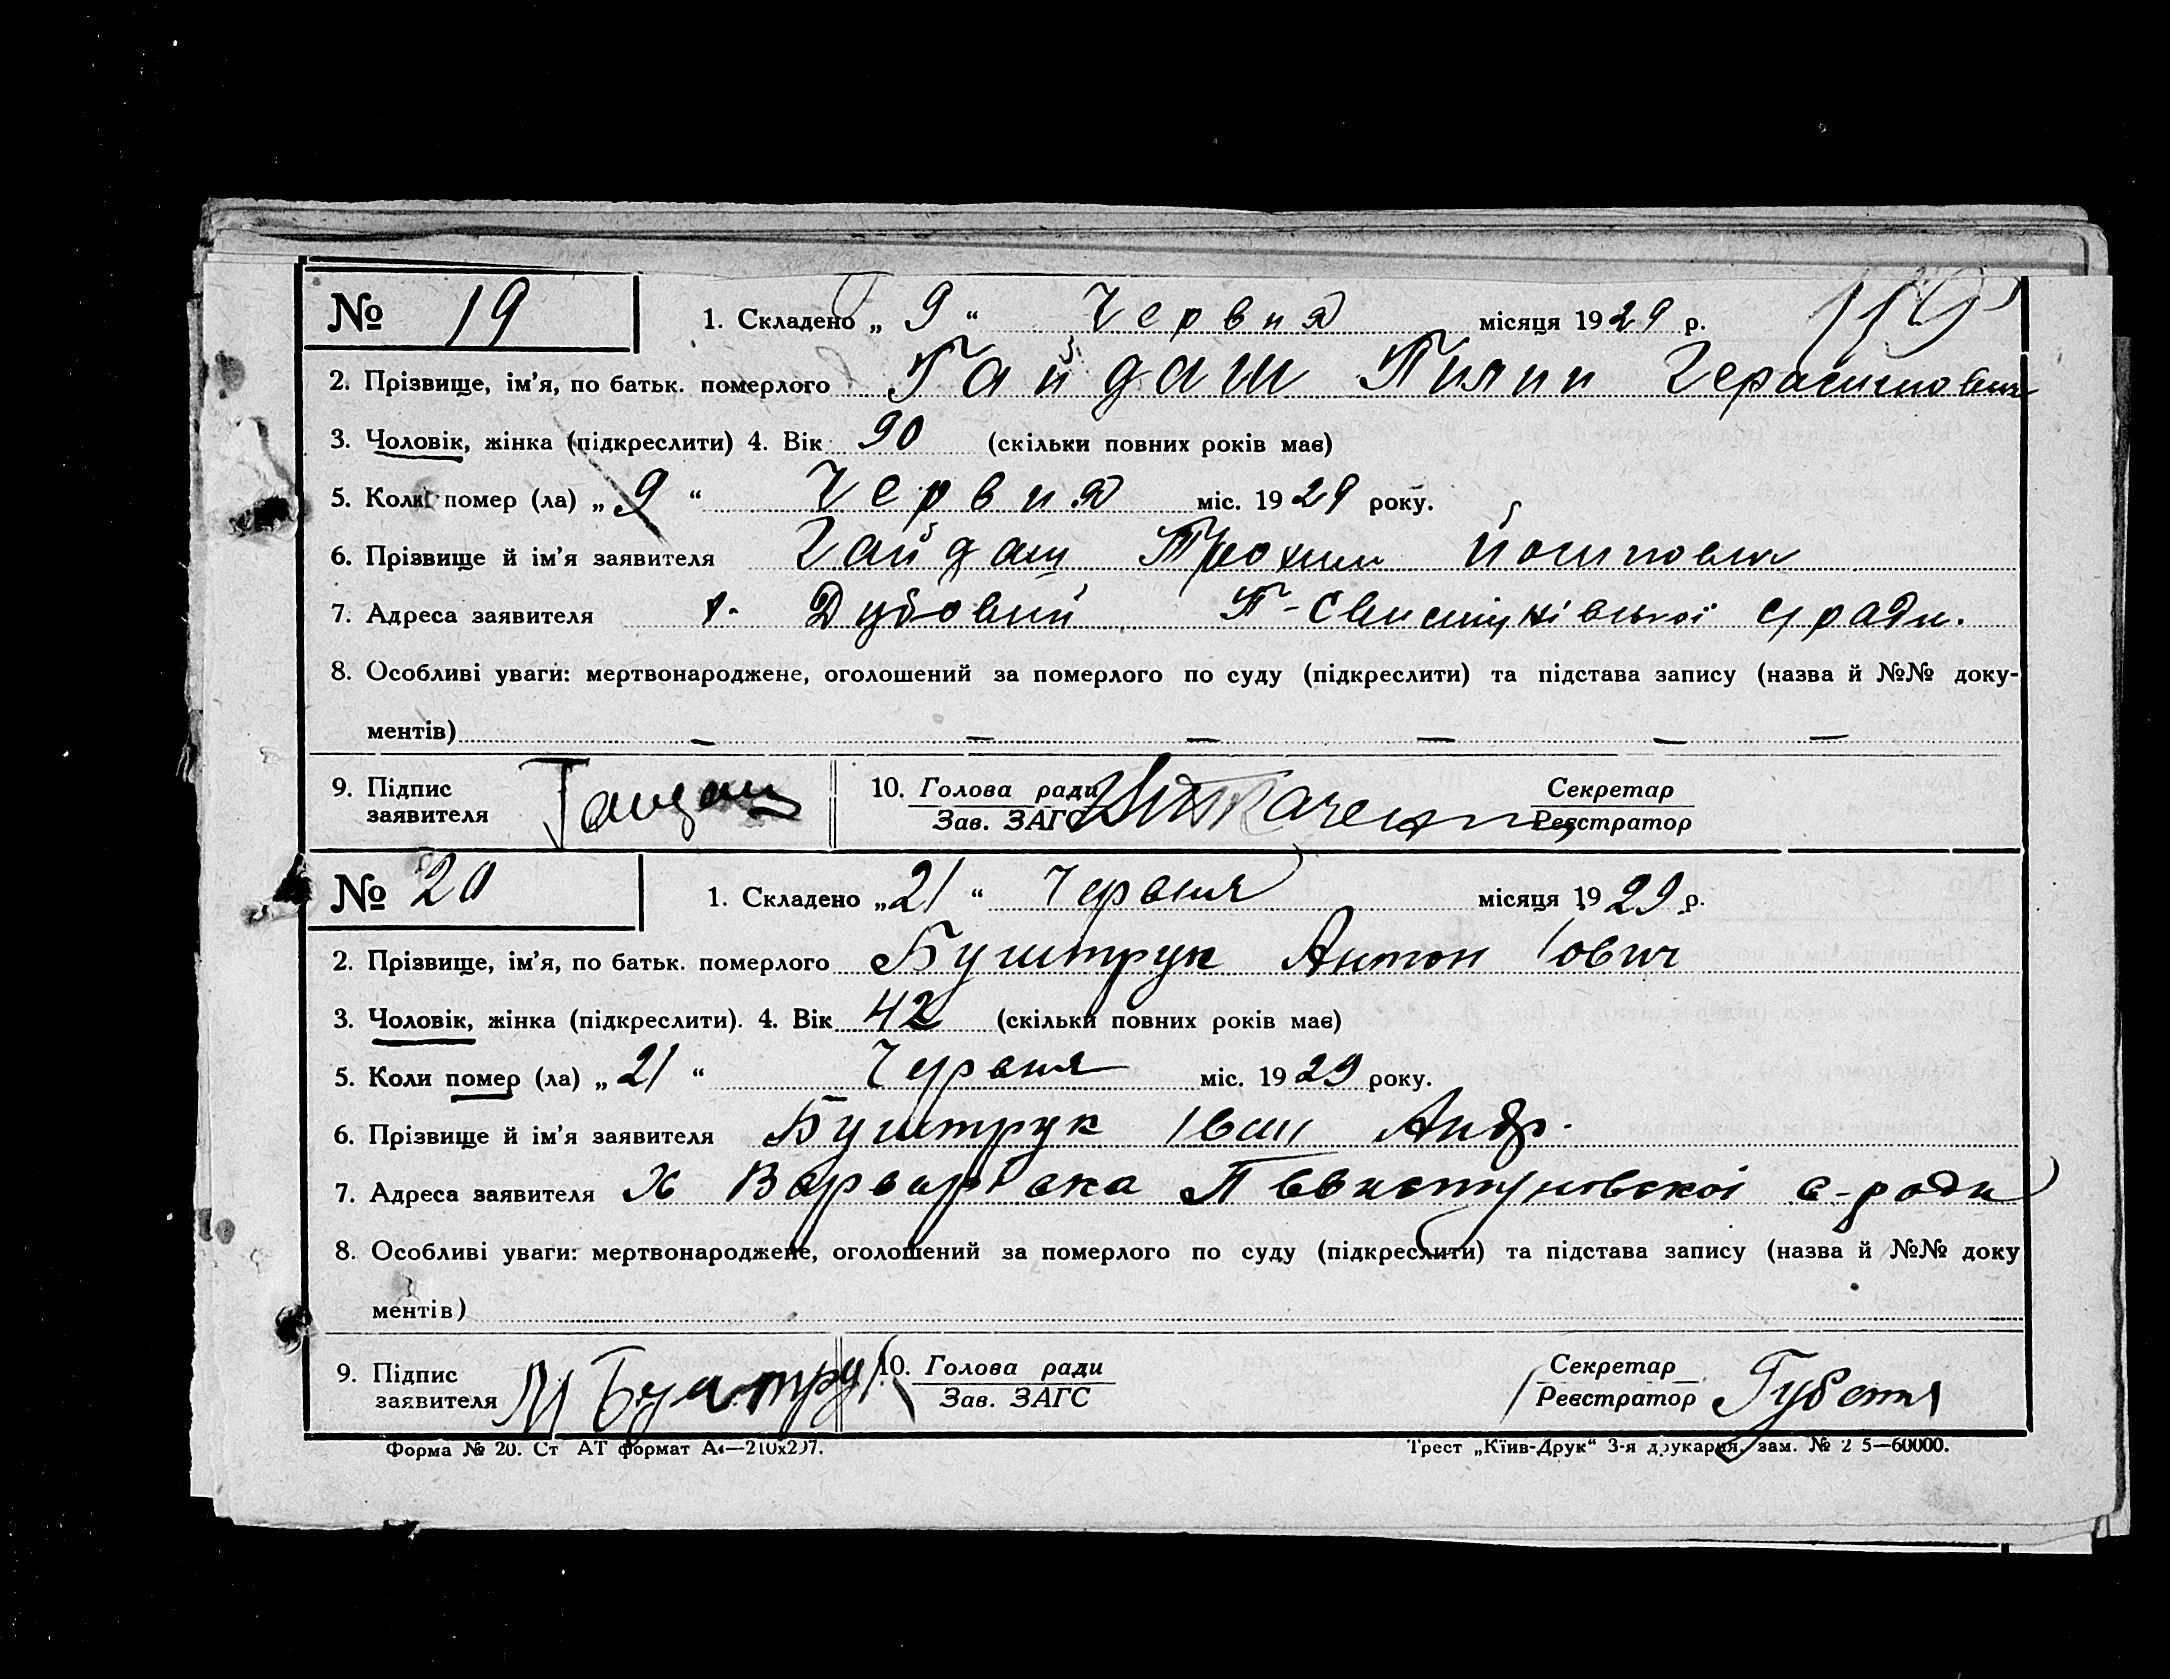 № 19 1. Складено „ 9 “ Червня місяця 1929 р. 119
2. Прізвище, ім’я, по батьк. померлого Гайдаш Пилип Герасимович
3. Чоловік, жінка (підкреслити) 4. Вік 90 (скільки повних років має)
5. Коли помер (ла) „ 9 “ Червня міс. 1929 року.
6. Прізвище й ім’я заявителя Гайдаш Трохим Йосипович
7. Адреса заявителя Дубовий П-Свистунівської с/ради.
8. Особливі уваги: мертвонароджене, оголошений за померлого по суду (підкреслити) та підстава запису (назва й №№ доку-
ментів) — — — — — —
9. Підпис заявителя Гайдаш 10. Голова ради Ткаченко Секретар
Зав. ЗАГС Реєстратор
№ 20 1. Складено „21“ Червня місяця 1929 р.
2. Прізвище, ім’я, по батьк. померлого Буштрук Антон Іович
3. Чоловік, жінка (підкреслити). 4. Вік 42 (скільки повних років має)
5. Коли помер (ла) „ 21 “ Червня міс. 1929 року.
6. Прізвище й ім’я заявителя Буштрук Іван Андр.
7. Адреса заявителя Х Варварівка П с-ради
8. Особливі уваги: мертвонароджене, оголошений за померлого по суду (підкреслити) та підстава запису (назва й №№ доку
ментів)
9. Підпис заявителя Буштрук 10. Голова ради Секретар
Зав. ЗАГС Реєстратор
Форма № 20. Ст АТ формат А4—210х297. Трест „Київ-Друк“ 3-я друкарня, зам. № 2 5—60000.